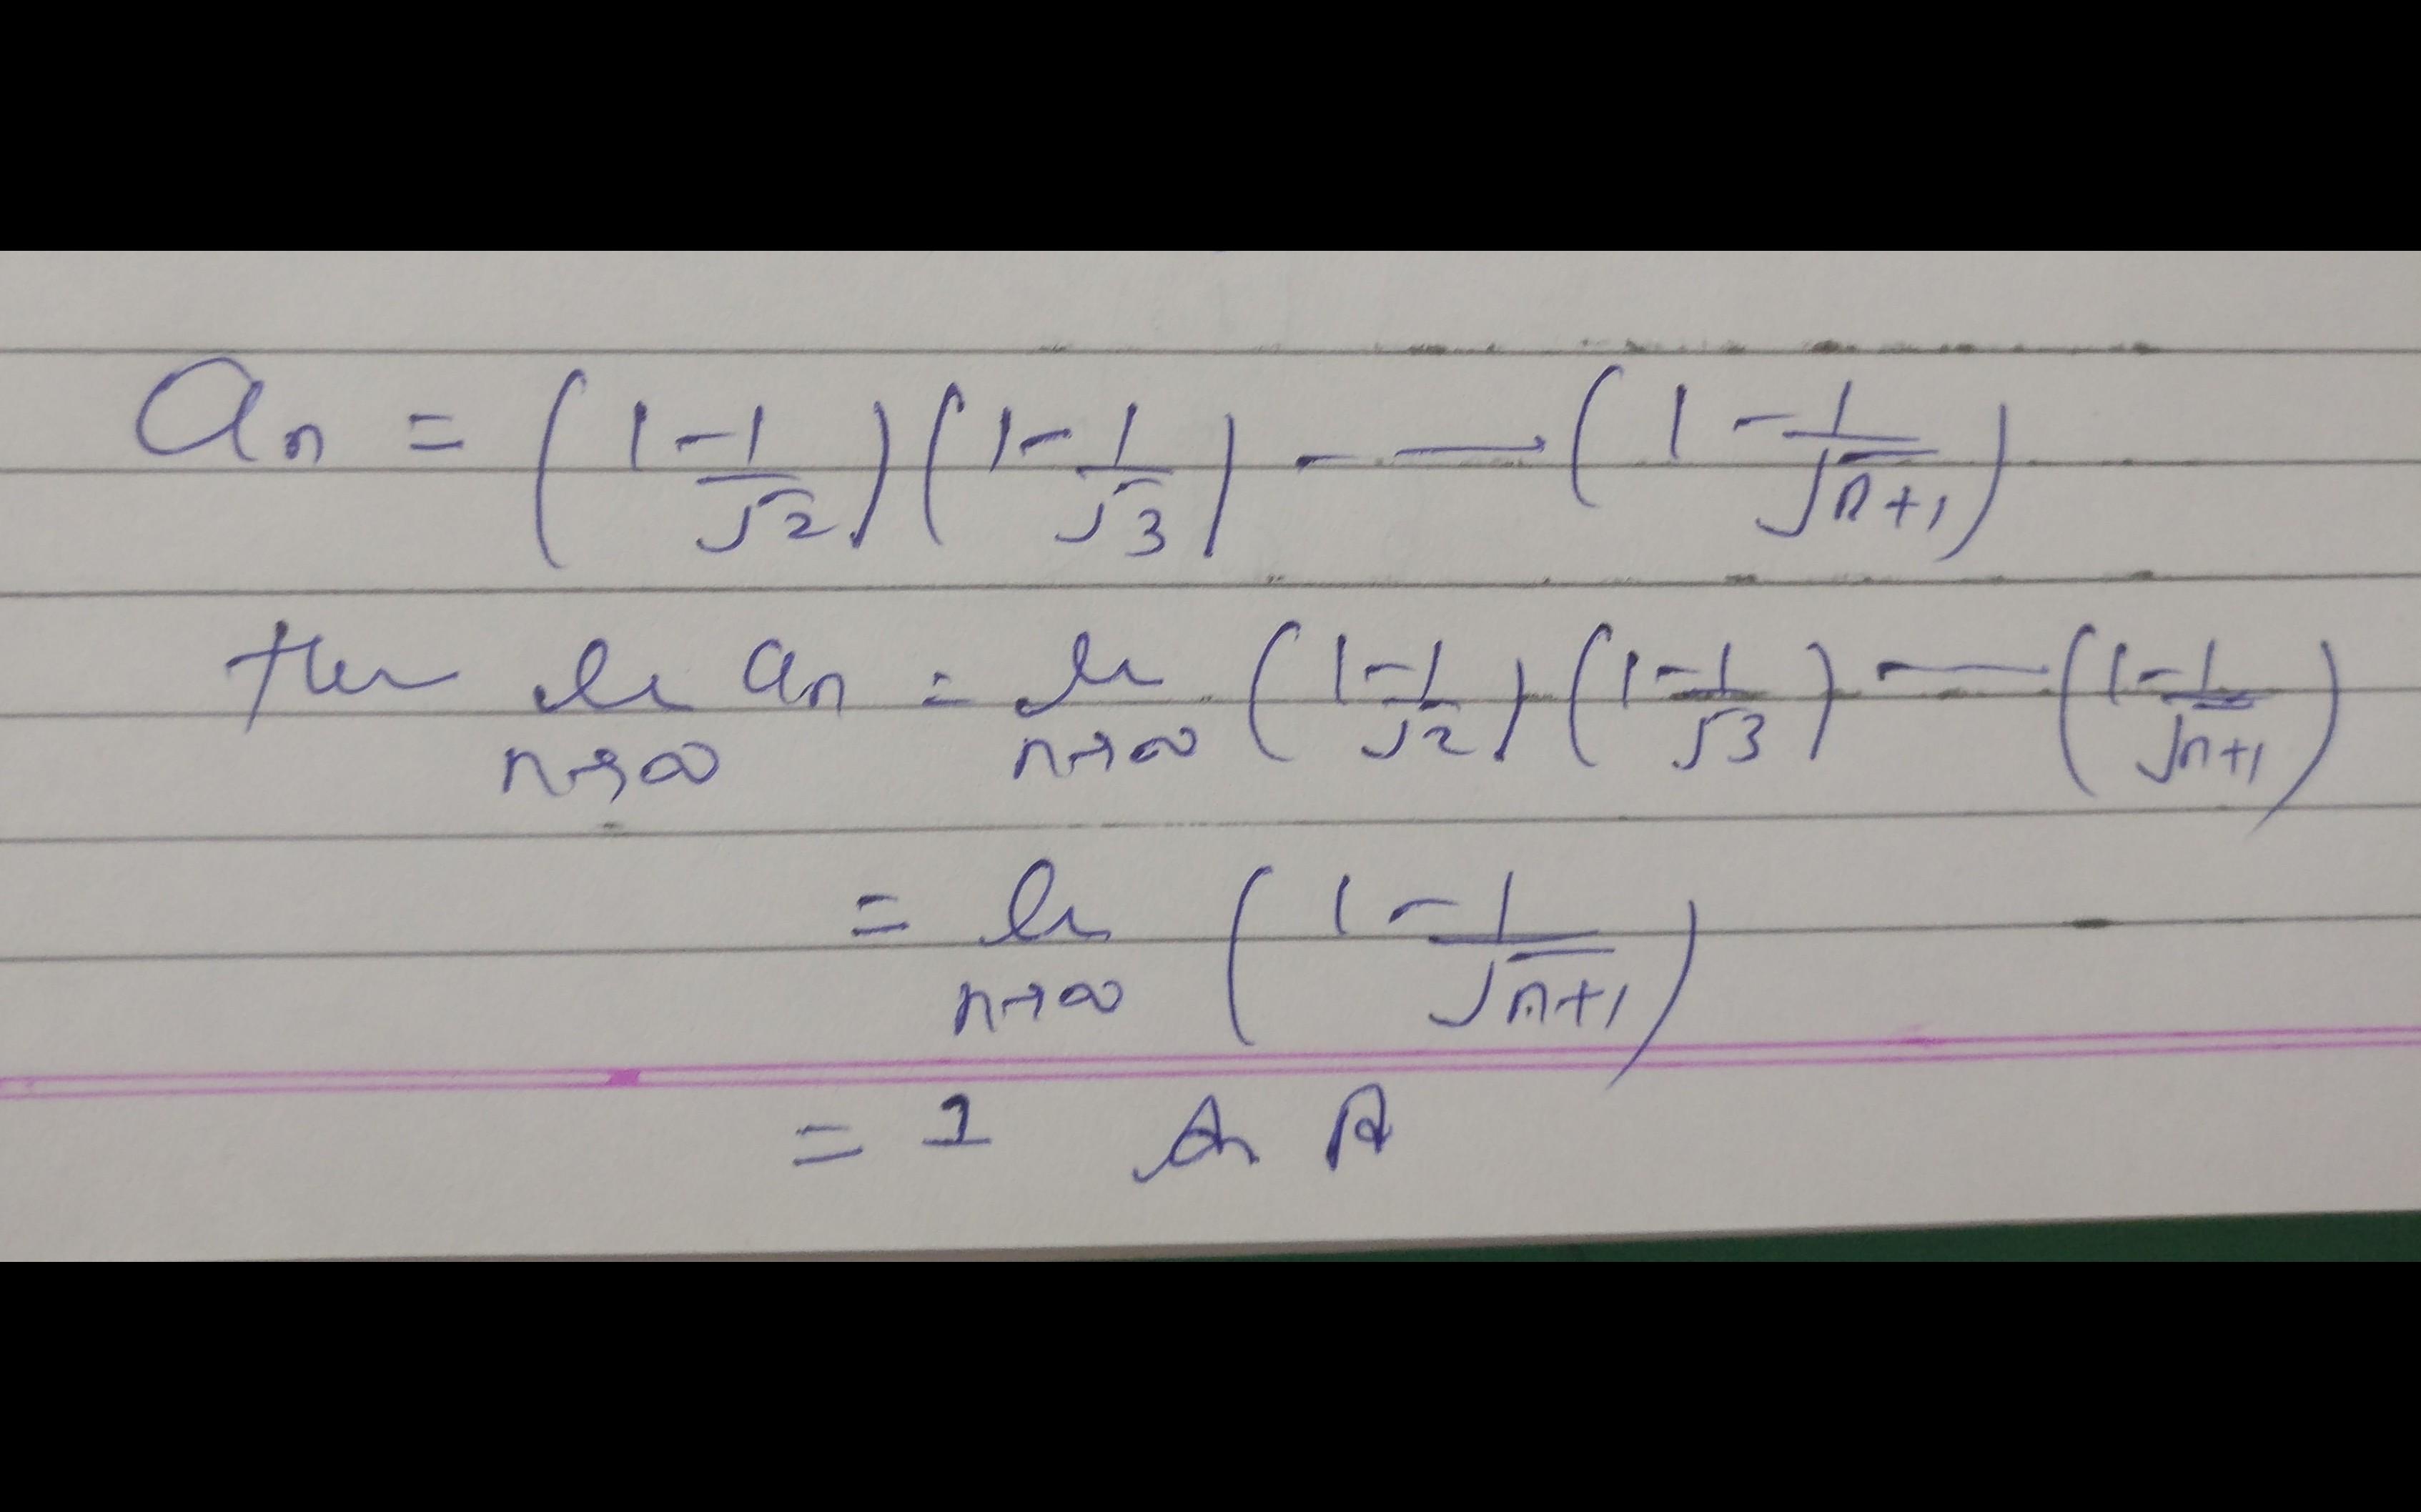 an = (1 - 1/√2) (1 - 1/√3) - — (1 - 1/√n+1)
then lim n→∞ an = lim n→∞ (1 - 1/√2) (1 - 1/√3) - — (1 - 1/√n+1)
= lim n→∞ (1 - 1/√n+1)
= 1